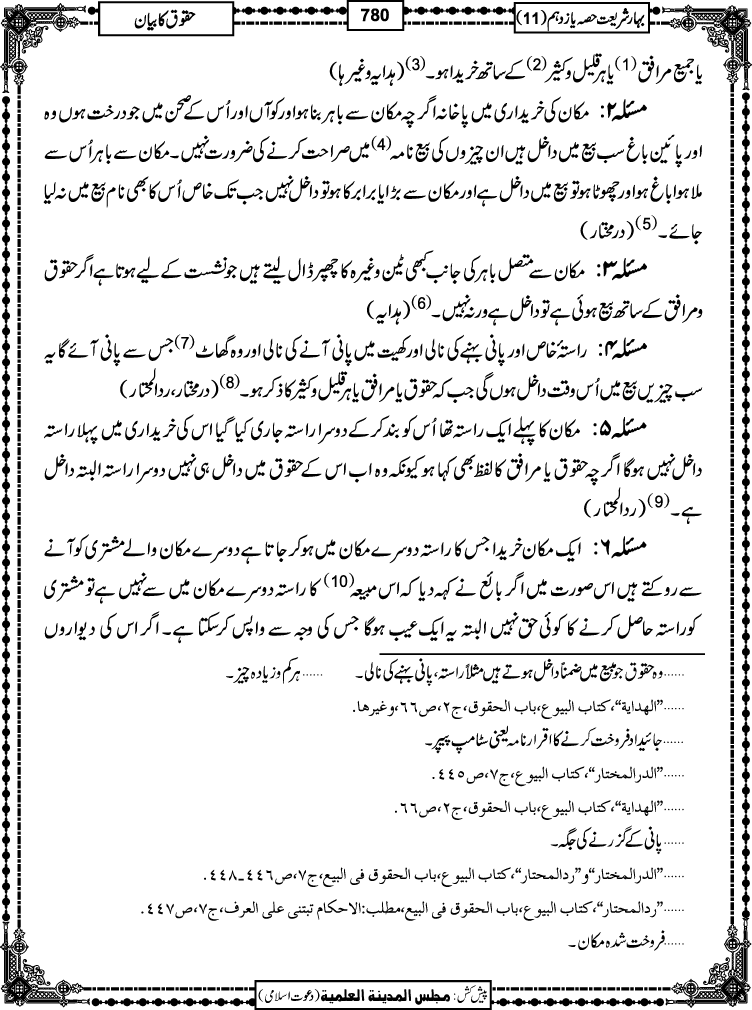 بہار شریعت حصہ یازدہم (11)
780
حقوق کا بیان
یا جمیع مرافق (1) یا ہر قلیل و کثیر (2) کے ساتھ خریدا ہو۔ (3) (ہدایہ وغیرہا)
مسئلہ ۲: مکان کی خریداری میں پاخانہ اگرچہ مکان سے باہر بنا ہو اور کوآں اور اُس کے صحن میں جو درخت ہوں وہ
اور پائین باغ سب بیع میں داخل ہیں ان چیزوں کی بیع نامہ (4) میں صراحت کرنے کی ضرورت نہیں۔ مکان سے باہر اُس سے
ملا ہوا باغ ہو اور چھوٹا ہو تو بیع میں داخل ہے اور مکان سے بڑا یا برابر کا ہو تو داخل نہیں جب تک خاص اُس کا بھی نام بیع میں نہ لیا
جائے۔ (5) (درمختار)
مسئلہ ۳: مکان سے متصل باہر کی جانب کبھی ٹین وغیرہ کا چھپر ڈال لیتے ہیں جو نشست کے لیے ہوتا ہے اگر حقوق
و مرافق کے ساتھ بیع ہوئی ہے تو داخل ہے ورنہ نہیں۔ (6) (ہدایہ)
مسئلہ ۴: راستۂ خاص اور پانی بہنے کی نالی اور کھیت میں پانی آنے کی نالی اور وہ گھاٹ (7) جس سے پانی آئے گا یہ
سب چیزیں بیع میں اُس وقت داخل ہوں گی جب کہ حقوق یا مرافق یا ہر قلیل و کثیر کا ذکر ہو۔ (8) (درمختار، ردالمحتار)
مسئلہ ۵: مکان کا پہلے ایک راستہ تھا اُس کو بند کرکے دوسرا راستہ جاری کیا گیا اس کی خریداری میں پہلا راستہ
داخل نہیں ہوگا اگرچہ حقوق یا مرافق کا لفظ بھی کہا ہو کیونکہ وہ اب اس کے حقوق میں داخل ہی نہیں دوسرا راستہ البتہ داخل
ہے۔ (9) (ردالمحتار)
مسئلہ ۶: ایک مکان خریدا جس کا راستہ دوسرے مکان میں ہو کر جاتا ہے دوسرے مکان والے مشتری کو آنے
سے روکتے ہیں اس صورت میں اگر بائع نے کہہ دیا کہ اس مبیعہ (10) کا راستہ دوسرے مکان میں سے نہیں ہے تو مشتری
کو راستہ حاصل کرنے کا کوئی حق نہیں البتہ یہ ایک عیب ہوگا جس کی وجہ سے واپس کرسکتا ہے۔ اگر اس کی دیواروں
......وہ حقوق جو مبیع میں ضمناً داخل ہوتے ہیں مثلاً راستہ، پانی بہنے کی نالی۔ ......ہر کم و زیادہ چیز۔
......"الهداية"، كتاب البيوع، باب الحقوق، ج۲، ص۶۶، وغيرها.
......جائیداد فروخت کرنے کا اقرار نامہ یعنی سٹامپ پیپر۔
......"الدرالمختار"، كتاب البيوع، ج۷، ص۴۴۵.
......"الهداية"، كتاب البيوع، باب الحقوق، ج۲، ص۶۶.
......پانی کے گزرنے کی جگہ۔
......"الدرالمختار" و "ردالمحتار"، كتاب البيوع، باب الحقوق في البيع، ج۷، ص۴۴۶-۴۴۸.
......"ردالمحتار"، كتاب البيوع، باب الحقوق في البيع، مطلب: الاحكام تبتنى على العرف، ج۷، ص۴۴۷.
......فروخت شدہ مکان۔
پیش کش: مجلس المدينة العلمية (دعوت اسلامی)